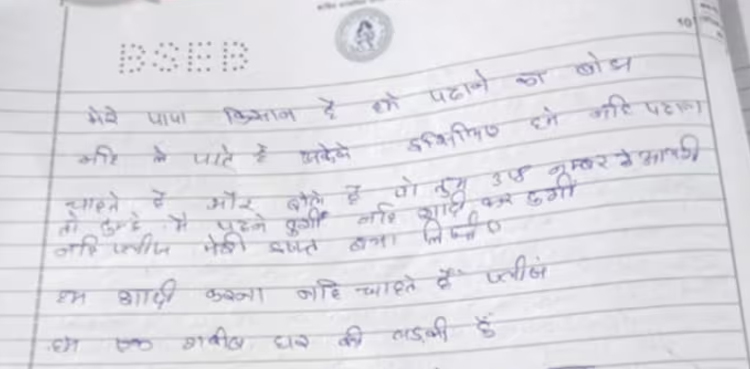 BSEB
10
मेरे पापा किसान है हमे पढाने का बोझ
नहि ले पाते है इसलिए हमे नहि पढाना
चाहते है और बोले है जो तुम उस नम्बर से आओगी
तो तुम्हे मै पढने दुगाँ नहि शादी कर दुगाँ
नहि प्लीज मेरी इज्जत बचा लिजीए
हम शादी करना नहि चाहते है प्लीज
हम एक गरीब घर की लडकी हैं